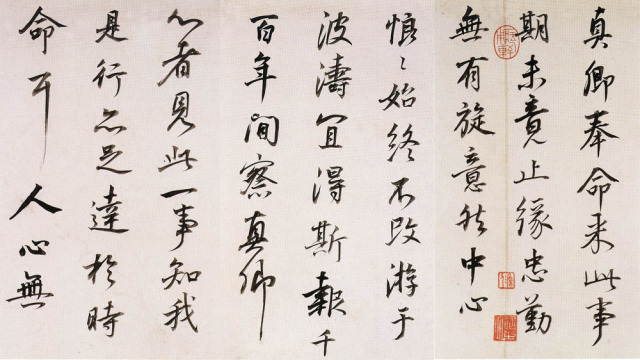 真卿奉命来此事
期未竟止緣忠勤
無有旋意然中心
悢〻始終不改游于
波濤宜得斯報千
百年間察真卿
心者見此一事知我
是行亦足達於時
命耳人心無